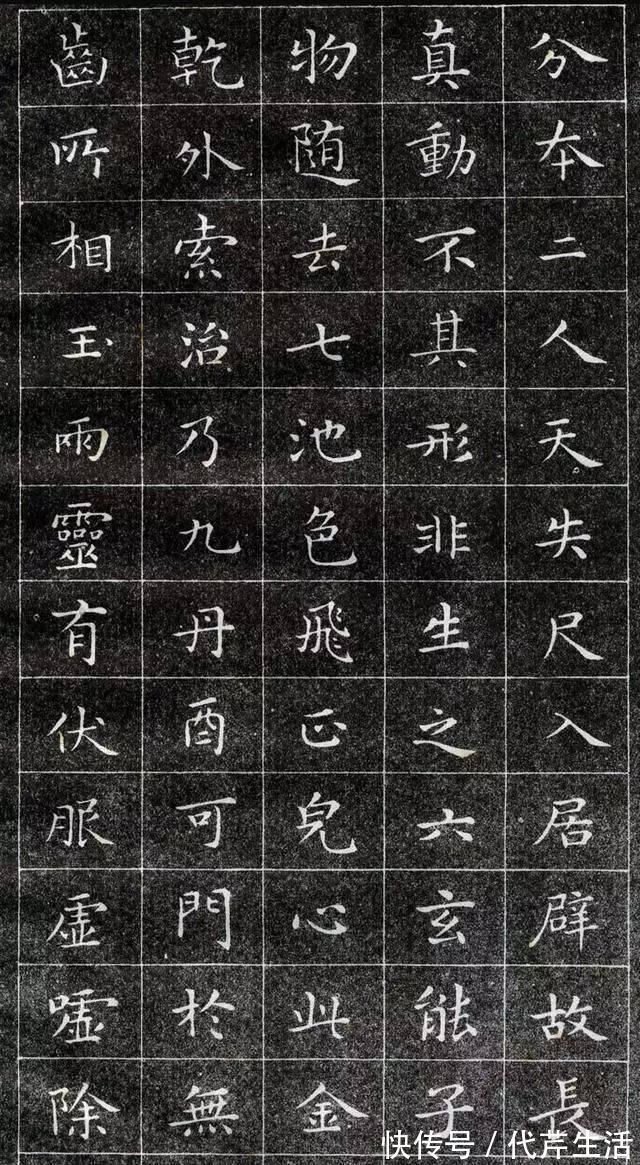 分本二人天失尺入居辟故長
真動不其形非生之六玄能子
物随去七池色飛正皃心此金
乾外索治乃九丹酉可門於無
齒所相玉雨靈有伏服虚嘘除
快传号 / 代芹生活